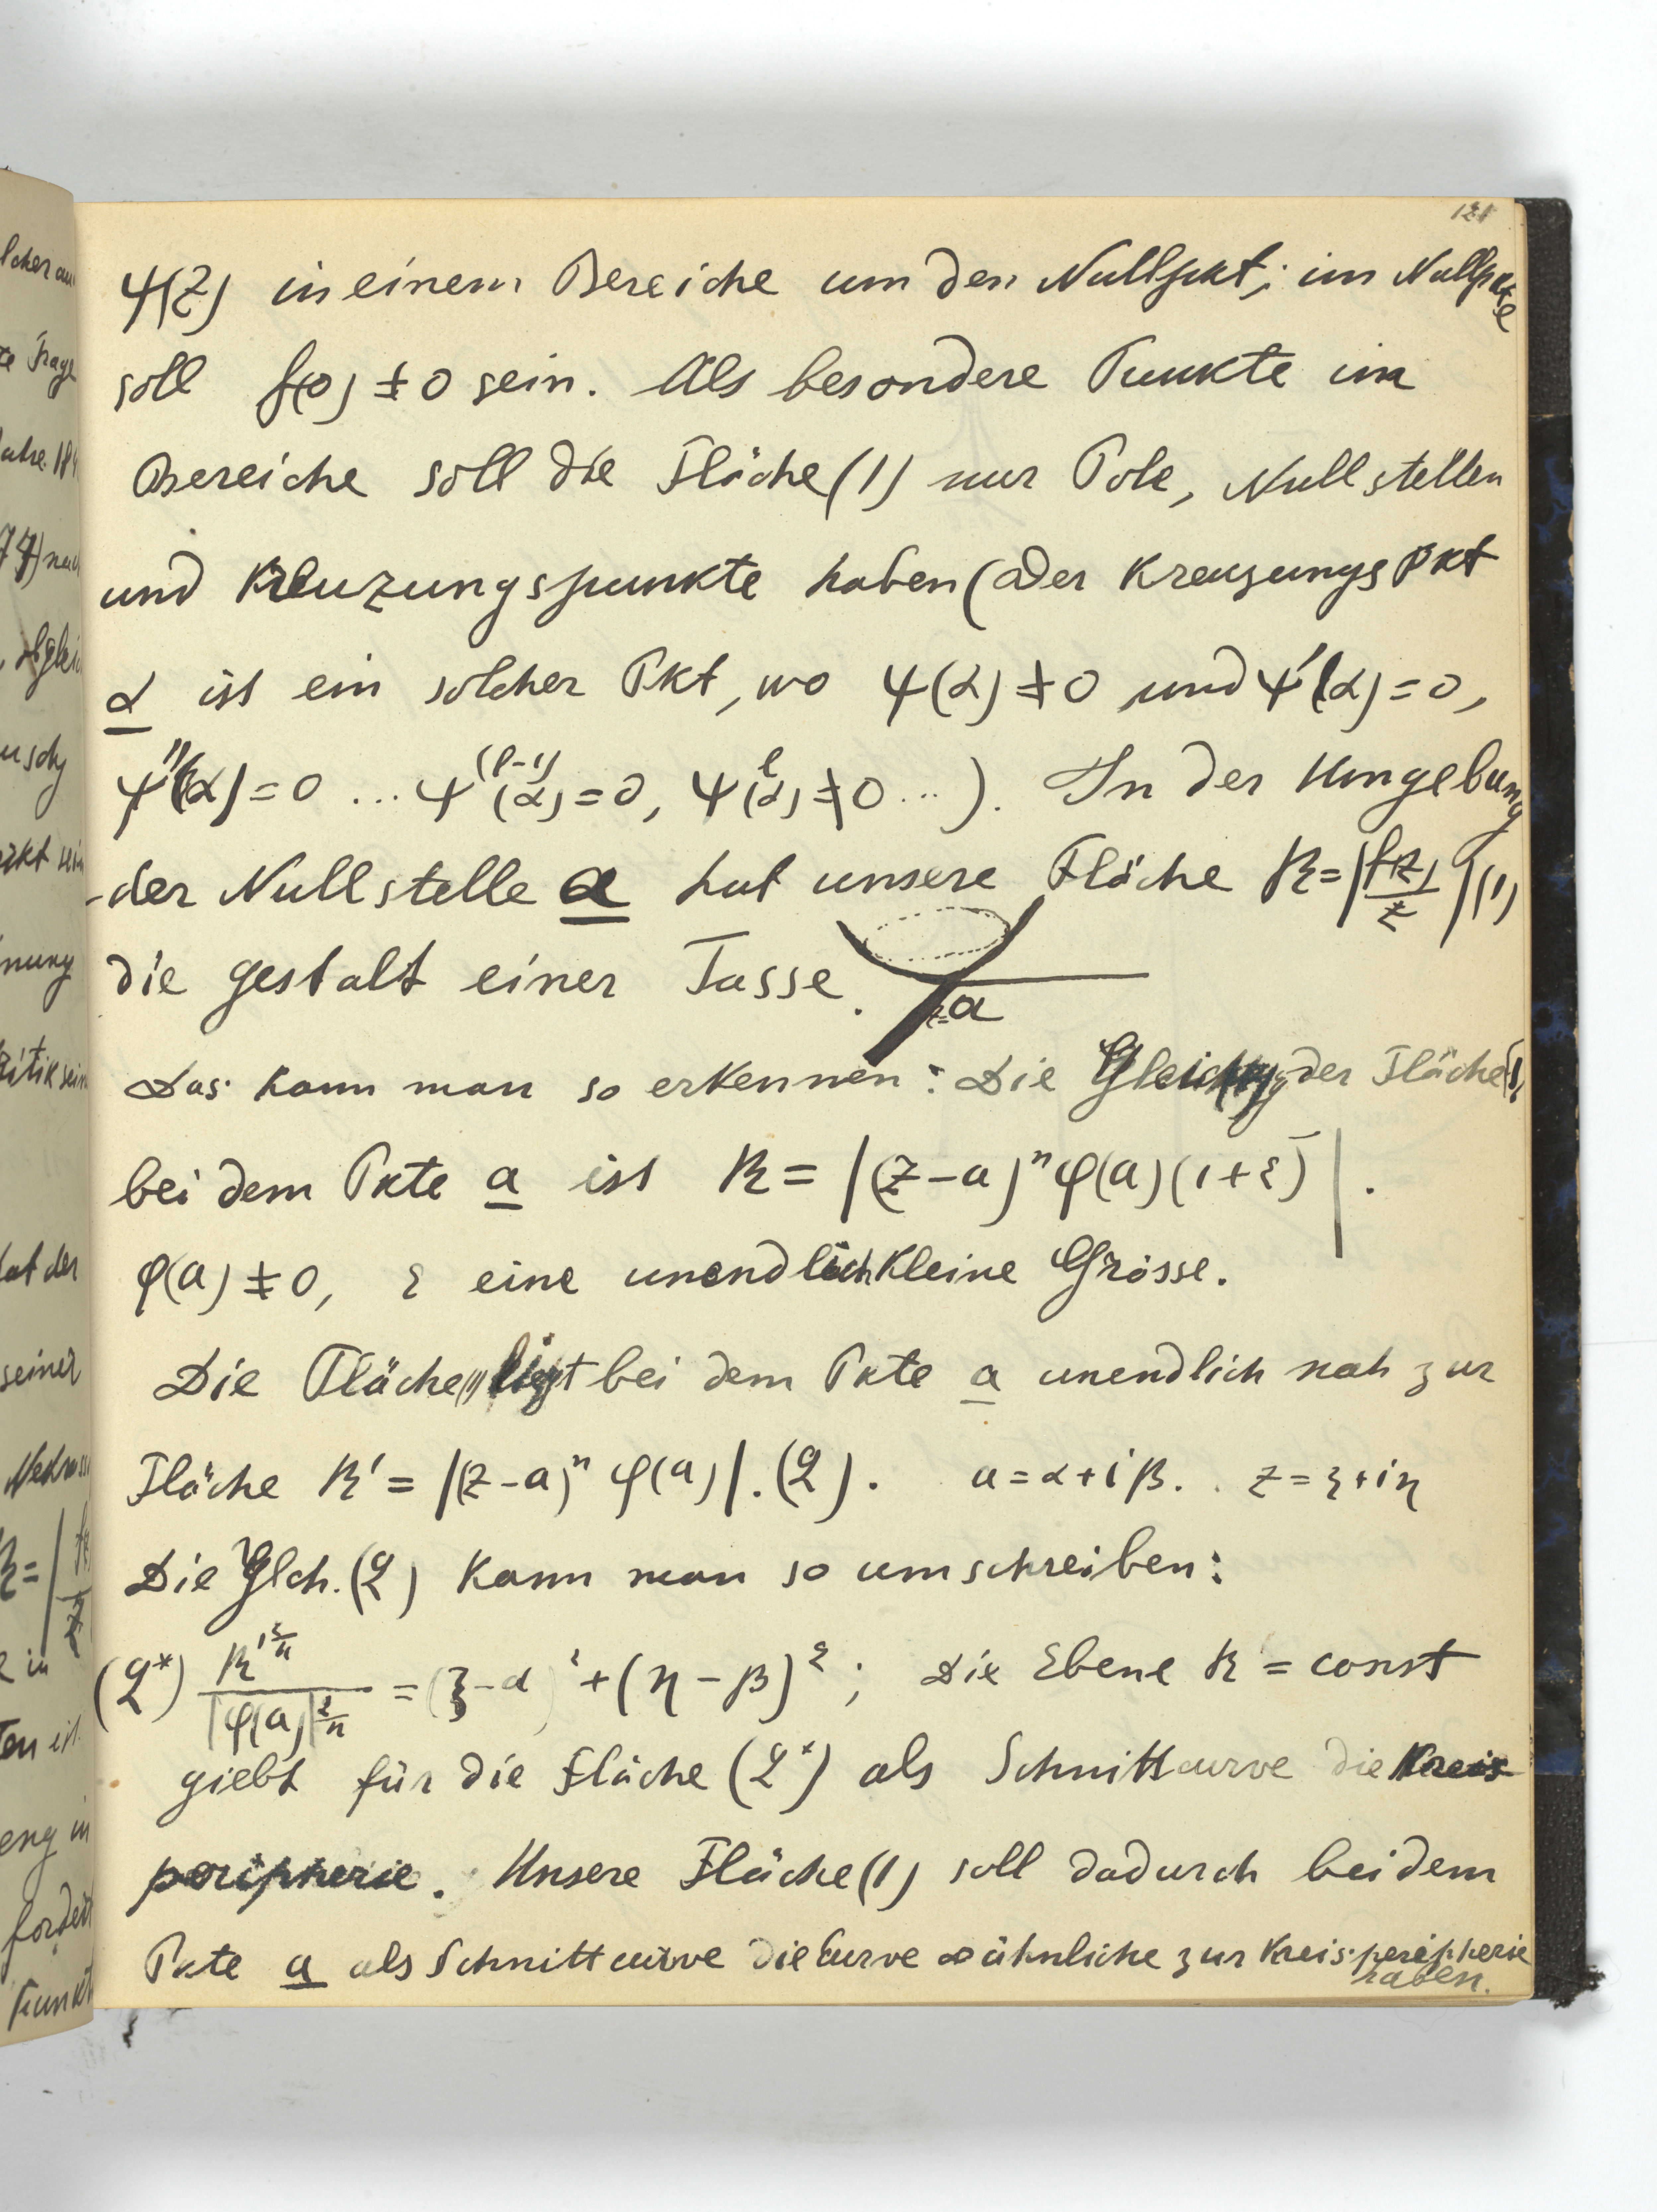 121
ψ(z) in einem Bereiche um den Nullpkt; im Nullpkte
soll f(0) ≠ 0 sein. Als besondere Punkte im
Bereiche soll die Fläche (1) nur Pole, Nullstellen
und Kreuzungspunkte haben (Der Kreuzungspkt
α ist ein solcher Pkt, wo ψ(α) ≠ 0 und ψ'(α) = 0,
ψ''(α) = 0 ... ψ^(l-1)(α) = 0, ψ^l(α) ≠ 0 ...). In der Umgebung
der Nullstelle a hat unsere Fläche R = |f(z)/z| (1)
die Gestalt einer Tasse.
z=a
Das kann man so erkennen: Die Gleichg der Fläche (1)
bei dem Pkte a ist R = |(z-a)^n φ(a)(1+ε)|.
φ(a) ≠ 0, ε eine unendlich kleine Grösse.
Die Fläche (1) liegt bei dem Pkte a unendlich nah zur
Fläche R' = |(z-a)^n φ(a)|. (2). a = α+iβ. z = ξ+iη
Die Glch. (2) kann man so umschreiben:
(2*) R'^(2/n) / |φ(a)|^(2/n) = (ξ-α)² + (η-β)²; Die Ebene R' = const
giebt für die Fläche (2*) als Schnittcurve die Kreis
peripherie. Unsere Fläche (1) soll dadurch bei dem
Pkte a als Schnittcurve die Curve ∞ ähnliche zur Kreisperipherie
haben.